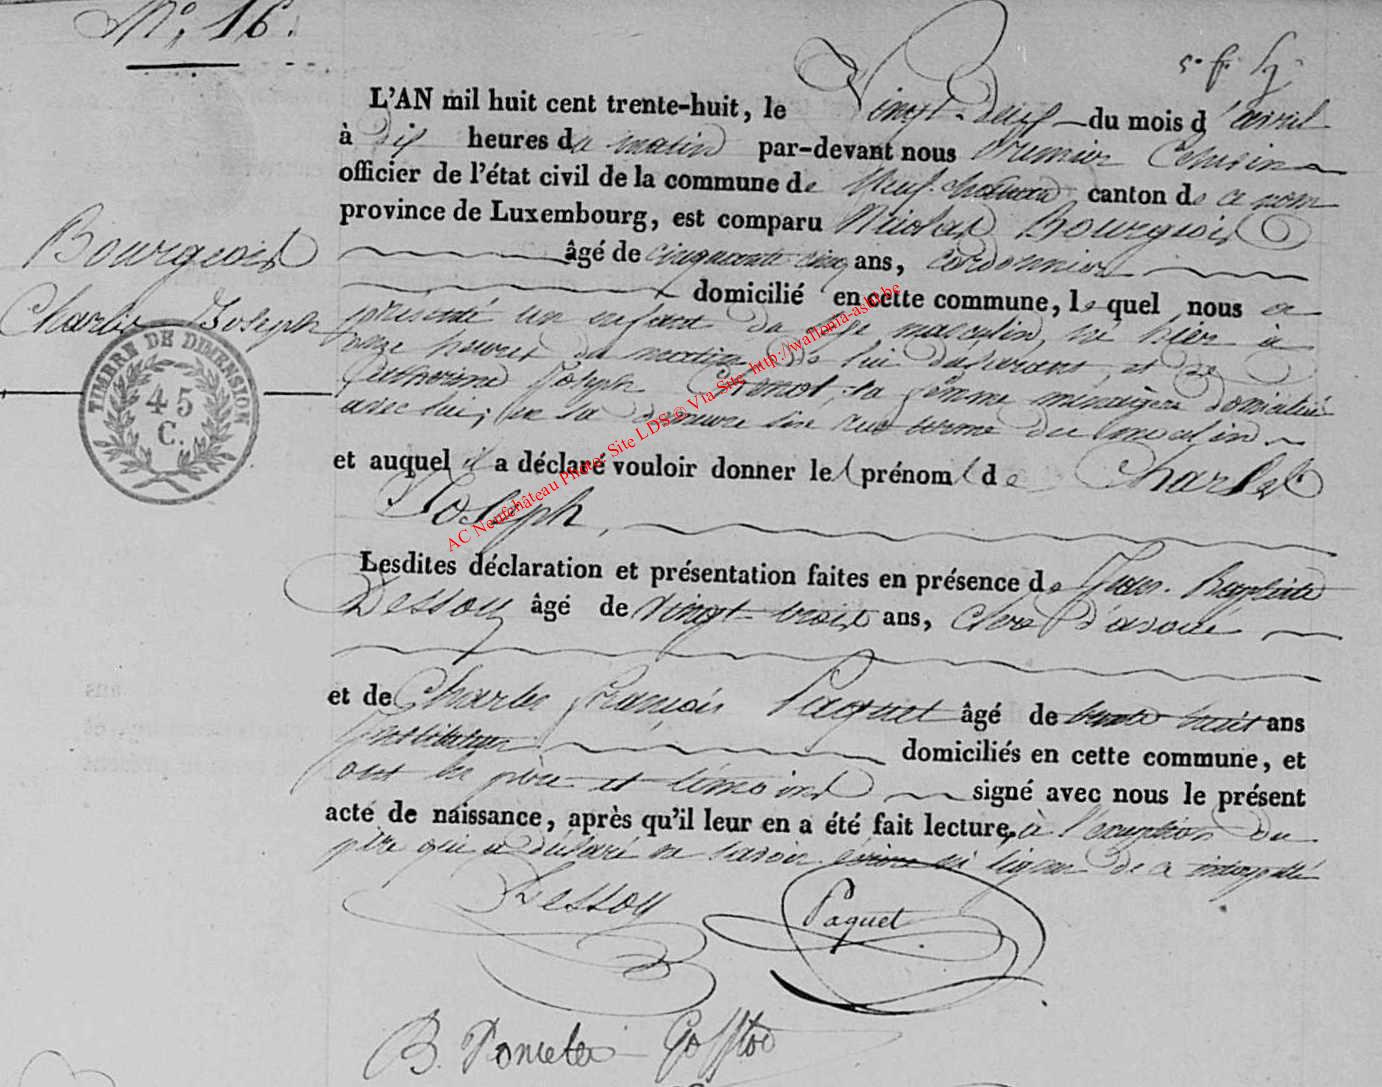 N.° 16.
L'AN mil huit cent trente-huit, le Vingt-deux du mois d'avril
à dix heures du matin par-devant nous Premier Echevin
officier de l'état civil de la commune de Neufchateau canton de ce nom
province de Luxembourg, est comparu Nicolas Bourgeois
âgé de cinquante cinq ans, cordonnier
domicilié en cette commune, lequel nous a
Bourgeois
Charles Joseph
présenté un enfant du sexe masculin, né hier à
onze heures du de lui déclarant, et de
Catherine Joseph sa femme ménagère domiciliée
avec lui, en sa demeure sise rue du moulin
et auquel il a déclaré vouloir donner les prénoms de Charles
Joseph,
Lesdites déclaration et présentation faites en présence de Jean-Baptiste
Dessoy âgé de vingt-trois ans, clerc d'avoué
et de Charles François Paquet âgé de trente huit ans
Instituteur domiciliés en cette commune, et
ont les père et témoins signé avec nous le présent
acte de naissance, après qu'il leur en a été fait lecture, à l'exception du
père qui a déclaré ne savoir écrire ni signer de ce interpellé
Dessoy
Paquet
B. Poncelet Goffton
TIMBRE DE DIMENSION
45
C.
AC Neufchâteau Photo: Site LDS © Via Site: http://wallonia-asbl.be